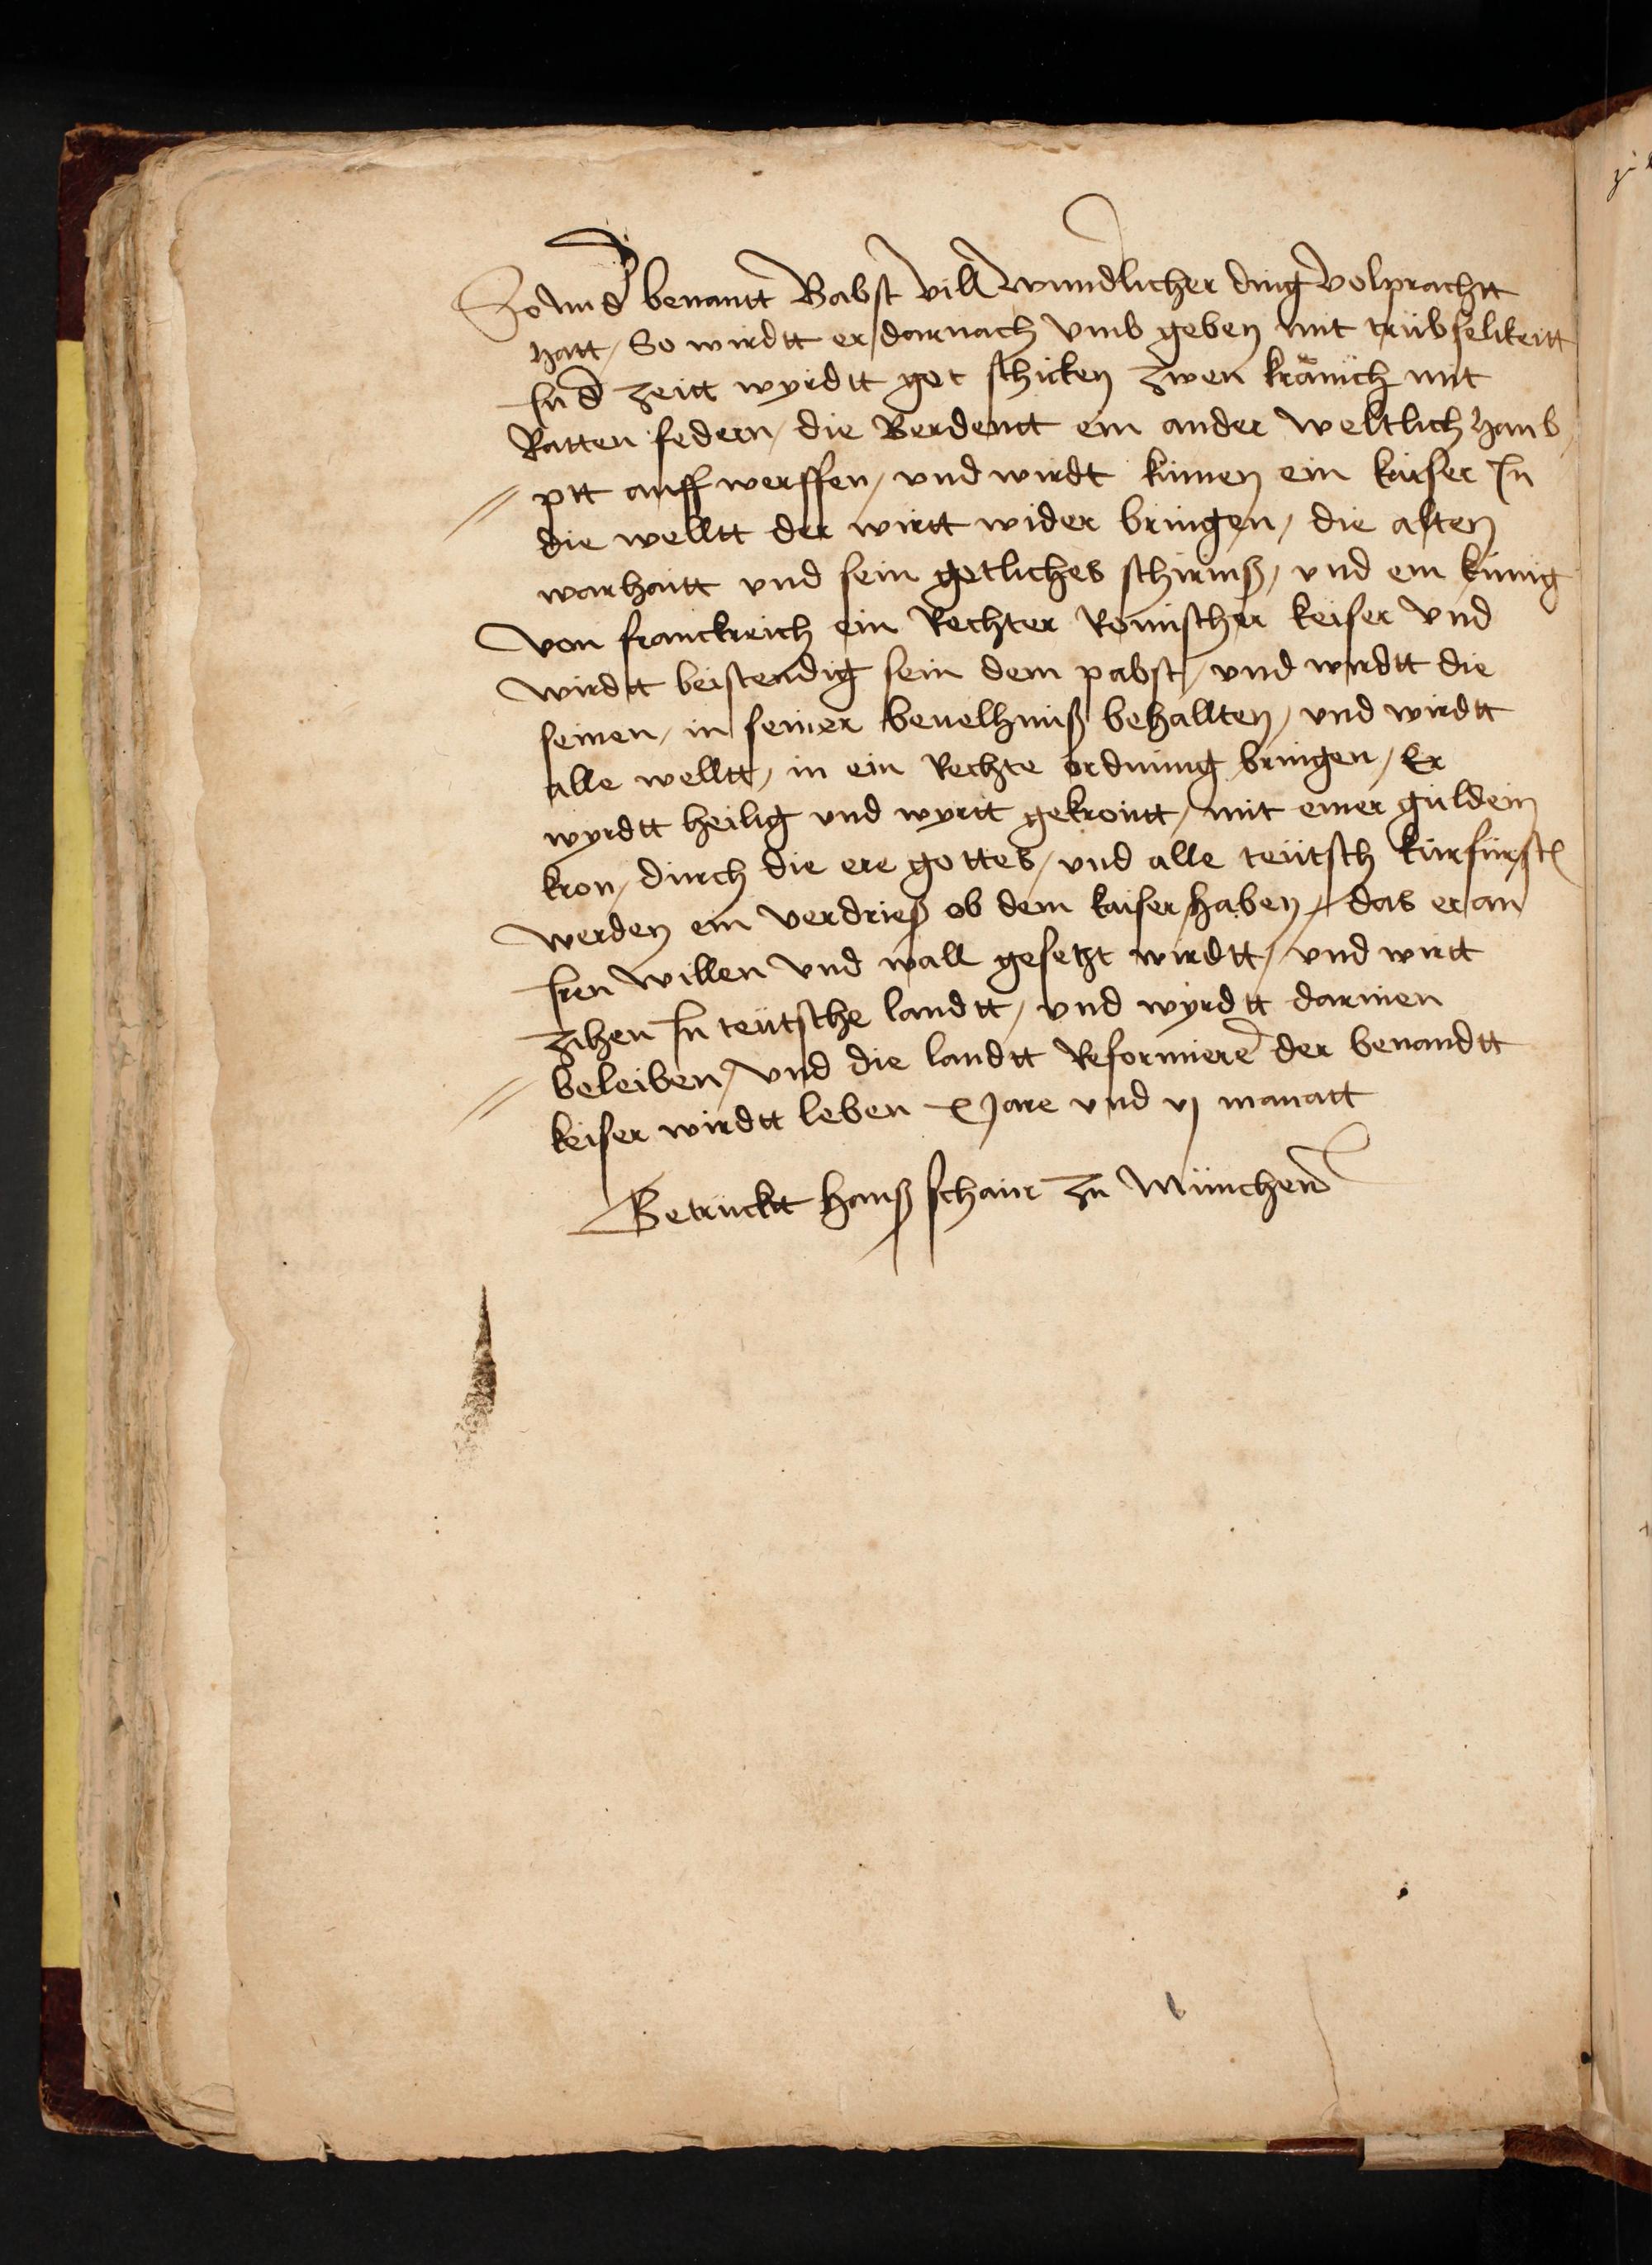 So nu d benantt Babst vill wundlicher ding volprachtt
hatt / So wirdtt er darnach vmb geben mit trübselikeitt
In d zeitt wyrdtt got schicken zwen kränich mit
Ratten federn / die Berdentt ein ander weltlich haub
ptt auff werffen / vnd wirdt kumen ein kaiser In
die welltt der wirtt wider bringen / die alten
warhaitt vnd sein gotliches schirmß / vnd ein künig
von franckreich ein Rechter Römischer keiser vnd
wirdtt beistendig sein dem pabst / vnd wirdtt die
seinen / in seiner beuelhnuß behallten / vnd wirdtt
alle welltt / in ein Rechte ordnung bringen / Er
wyrdtt heilig vnd wyrtt gekröntt / mit einer guldein
kron / durch die ere gottes / vnd alle teütsch kurfürst
werden ein verdrieß ob dem kaiser haben / das er an
Iren willen vnd wall gesetzt wirdtt / vnd wirtt
zihen In teütsche landtt / vnd wyrdtt darinen
beleiben / vnd die landtt Reformiere der benandtt
keiser wirdtt leben x Jare vnd vj manatt
Getruckt hanß schaur zu München